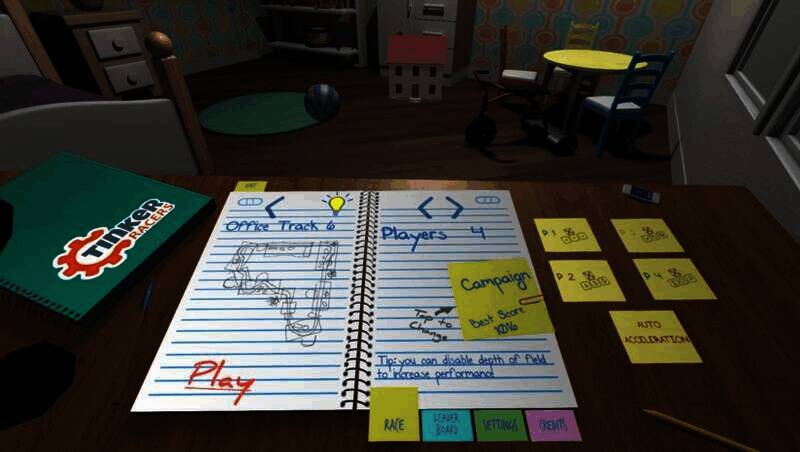 TINKER
RACERS
Office Track 6
Play
Players 4
Campaign
Best Score
Tap to
Change
Tip: you can disable depth of field
to increase performance
RACE
LEADER
BOARD
SETTINGS
CREDITS
P 1
P 2
P 4
AUTO
ACCELERATION